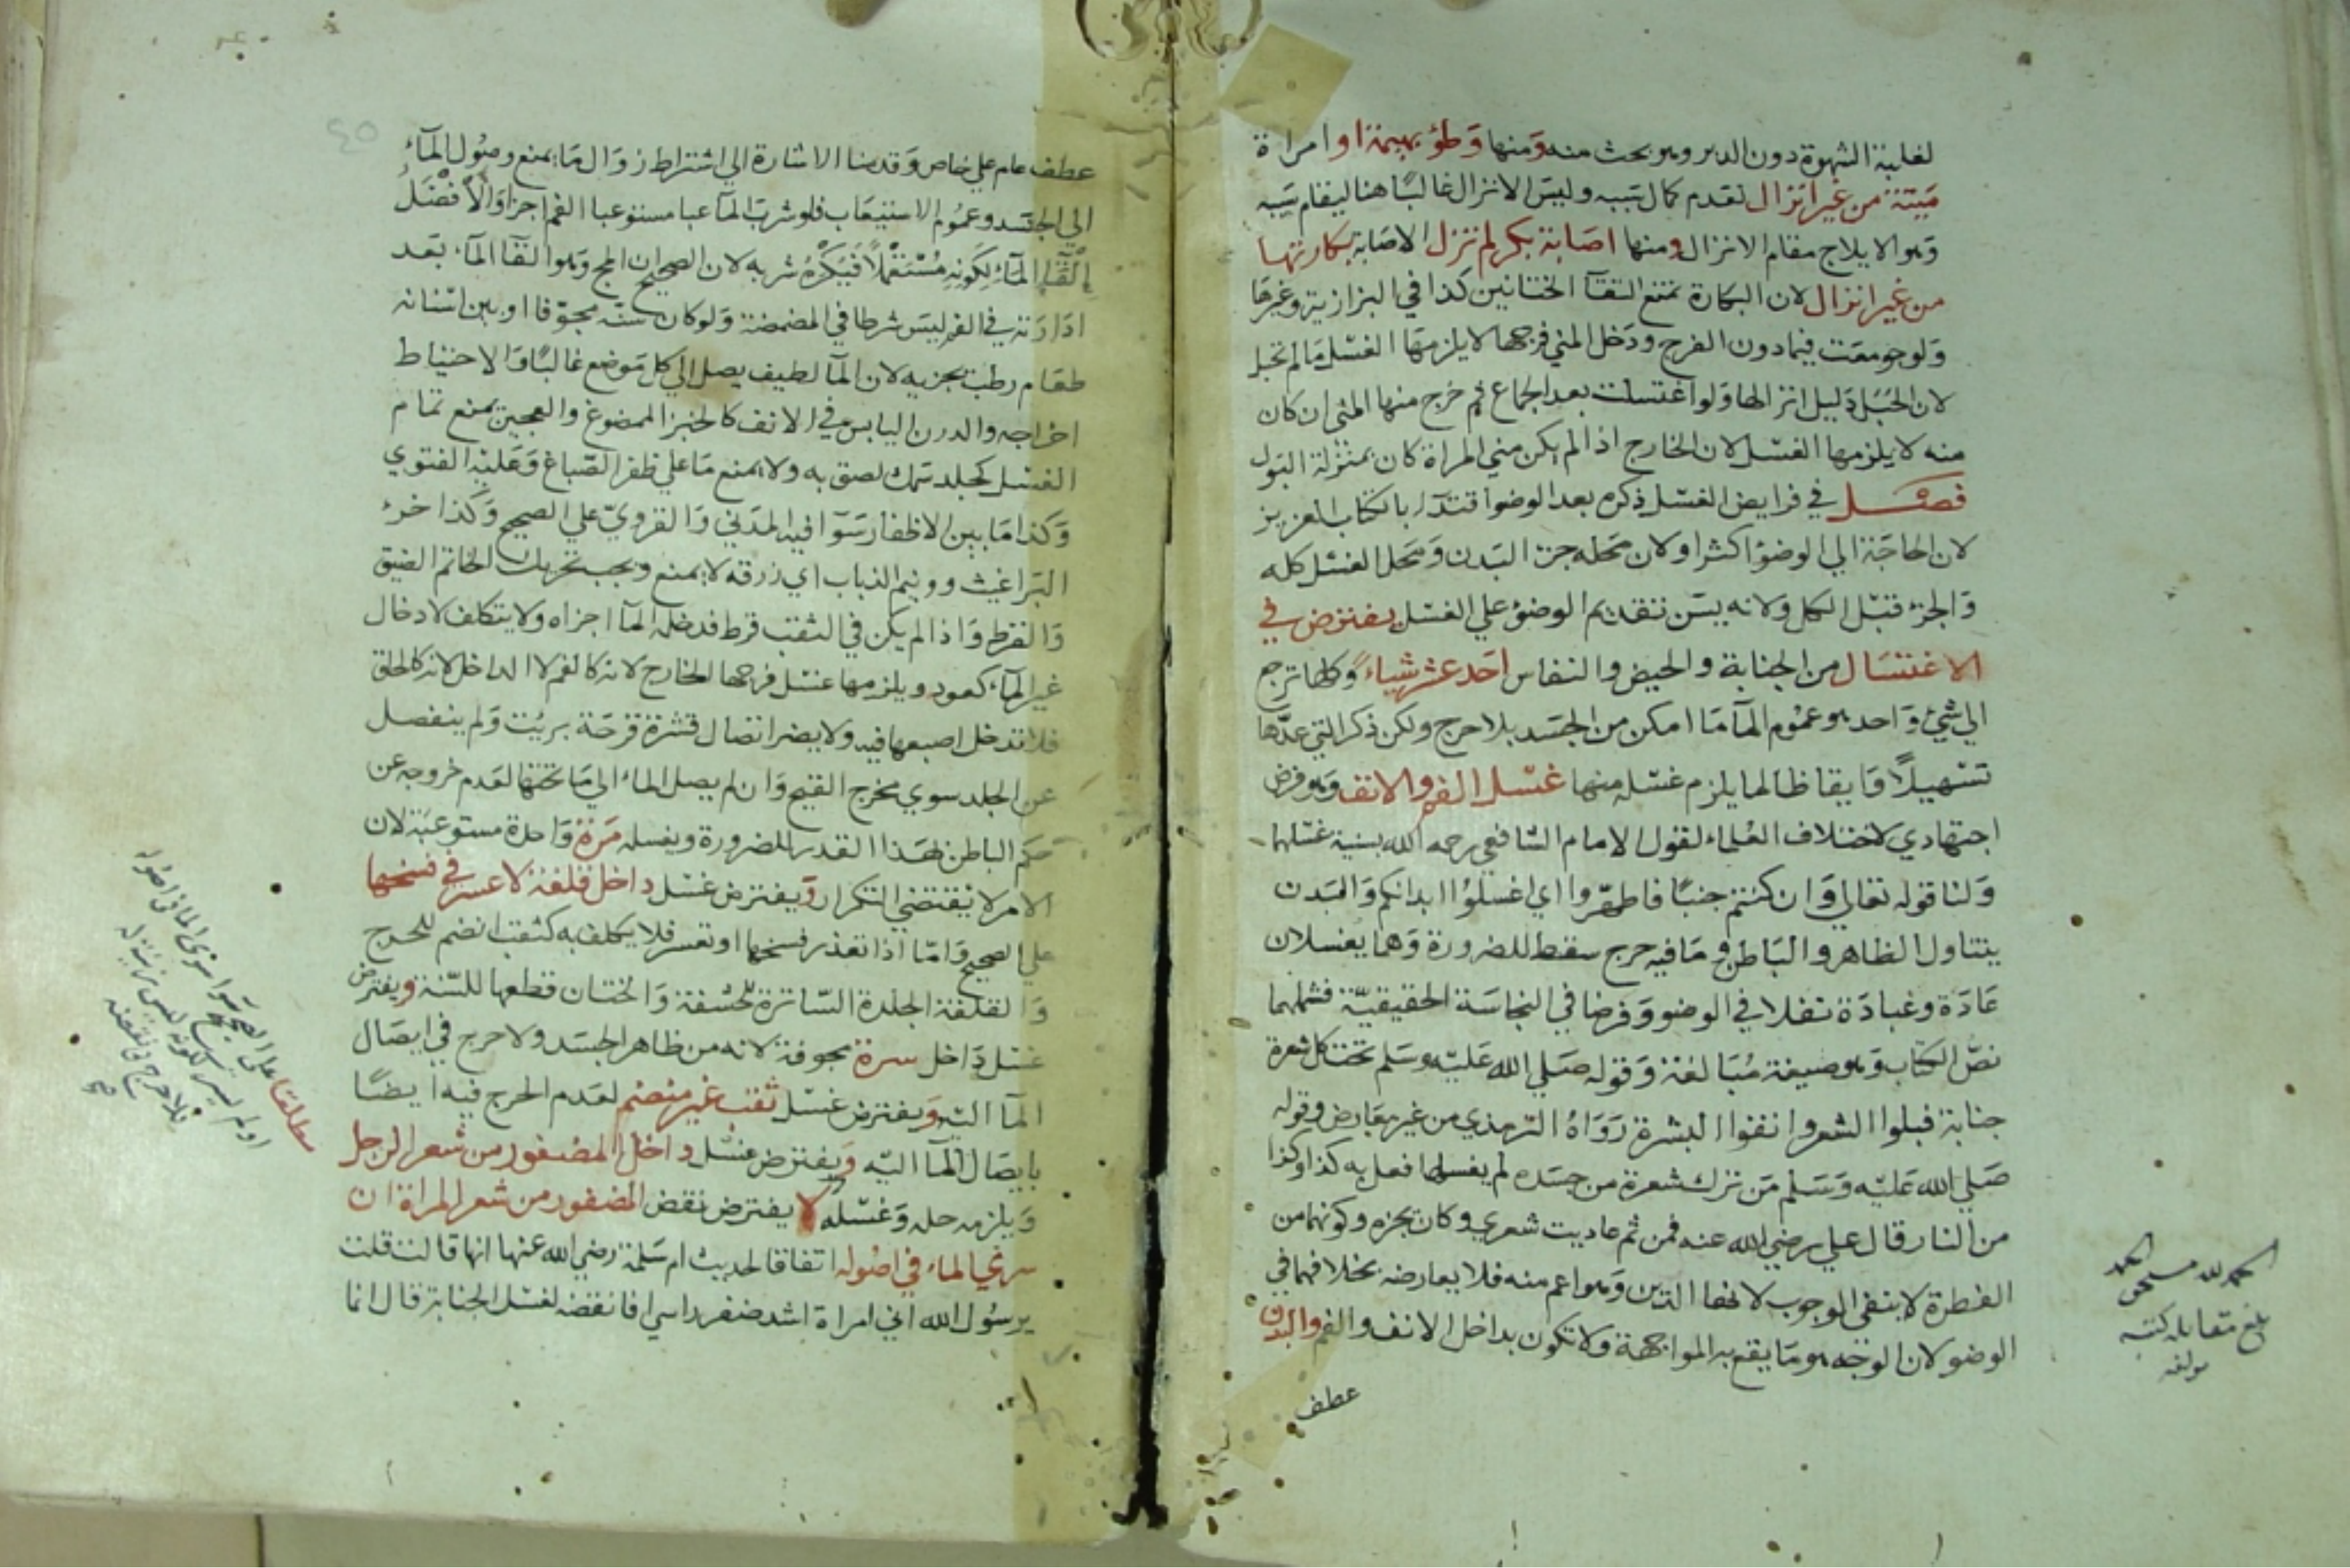 لغلبة الشهوة دون الدبر وهو بحث منه ومنها وطؤ بهيمة او امراة
ميتة من غير انزال لعدم كمال سببه وليس الانزال غالبا هنا ليقام سببه
وهو الايلاج مقام الانزال ومنها اصابة بكر لم تزل الاصابة بكارتها
من غير انزال لان البكارة تمنع التقآ الختانين كذا في البزازية وغيرها
ولو جومعت فيما دون الفرج ودخل المني فرجها لا يلزمها الغسل ما لم تحبل
لان الحبل دليل انزالها ولو اغتسلت بعد الجماع ثم خرج منها المني ان كان
منه لا يلزمها الغسل لان الخارج اذا لم يكن مني المراة كان بمنزلة البول
فصل في فرايض الغسل ذكره بعد الوضوا قتدآء بالكتاب العزيز
لان الحاجة الي الوضؤ اكثر او لان محله جزء البدن ومحل الغسل كله
والجزء قبل الكل ولانه يسن تقديم الوضؤ علي الغسل يفترض في
الاغتسال من الجنابة والحيض والنفاس احد عشر شياء وكلها ترجع
الي شيء واحد هو عموم المآ ما امكن من الجسد بلا حرج ولكن ذكر التي عدها
تسهيلا وايقاظا لما يلزم غسله منها غسل الفم والانف وهو فرض
اجتهادي لاختلاف العلماء لقول الامام الشافعي رحمه الله بسنية غسلهما
ولنا قوله تعالي وان كنتم جنبا فاطهروا اي اغسلوا ابدانكم والبدن
يتناول الظاهر والباطن وما فيه حرج سقط للضرورة وهما يغسلان
عادة وعبادة نفلا في الوضو وفرضا في النجاسة الحقيقية فشملهما
نص الكتاب وهو صيغة مبالغة وقوله صلي الله عليه وسلم تحت كل شعرة
جنابة فبلوا الشعر وانقوا البشرة رواه الترمذي من غير معارض وقوله
صلي الله عليه وسلم من ترك شعرة من جسده لم يغسلها فعل به كذا وكذا
من النار قال علي رضي الله عنه فمن ثم عاديت شعري وكان يجزه وكونهما من
الفطرة لا ينفي الوجوب لانها الدين وهو اعم منه فلا يعارضه بخلافهما في
الوضو لان الوجه هو ما يقع به المواجهة ولا تكون بداخل الانف والفم والبدن
عطف
الحمد لله مستحق الحمد
بلغ مقابلة كتبه
مولفه
عطف عام علي خاص وقدمنا الاشارة الي اشتراط زوال ما يمنع وصول المآء
الي الجسد وعموم الاستيعاب فلو شرب المآ عبا مستوعبا الفم اجزا والافضل
إلقاء المآء لكونه مستعملا فيكره شربه لان الصحيح ان المج وهو القا المآء بعد
ادارته في الفم ليس شرطا في المضمضة ولو كان سنه مجوفا او بين اسنانه
طعام رطب يجزيه لان المآ لطيف يصل الي كل موضع غالبا والاحتياط
اخراجه والدرن اليابس في الانف كالخبز الممضوغ والعجين يمنع تمام
الغسل كجلد سمك لصق به ولا يمنع ما علي ظفر الصباغ وعليه الفتوي
وكذا ما بين الاظفار سوآ فيه المدني والقروي علي الصحيح وكذا خرء
البراغيث وونيم الذباب اي زرقه لا يمنع ويجب تحريك الخاتم الضيق
والقرط واذا لم يكن في الثقب قرط فدخله المآ اجزاه ولا يتكلف لادخال
غير المآء كعود ويلزمها غسل فرجها الخارج لانه كالفم لا الداخل لانه كالحلق
فلا تدخل اصبعها فيه ولا يضر اتصال قشرة قرحة بريت ولم ينفصل
عن الجلد سوي مخرج القيح وان لم يصل الماء الي ما تحتها لعدم خروجه عن
حكم الباطن لهذا القدر للضرورة ويغسله مرة واحدة مستوعبة لان
الامر لا يقتضي التكرار ويفترض غسل داخل قلفة لا عسر في فسخها
علي الصحيح واما اذا تعذر فسخها او تعسر فلا يكلف به كثقب انضم للحرج
والقلفة الجلدة الساترة للحشفة والختان قطعها للسنة ويفترض
غسل داخل سرة مجوفة لانه من ظاهر الجسد ولا حرج في ايصال
المآ اليه ويفترض غسل ثقب غير منضم لعدم الحرج فيه ايضا
بايصال المآ اليه ويفترض غسل داخل المضفور من شعر الرجل
ويلزمه حله وغسله لا يفترض نقض المضفور من شعر المراة ان
سري الماء في اصوله اتفاقا لحديث ام سلمة رضي الله عنها انها قالت قلت
يرسول الله اني امراة اشد ضفر راسي افانقضه لغسل الجنابة قال انما
مطلقا علي الصحيح سوا سري الما في اصوله
او لم يسر لكونه ليس زينة له
فلا حرج في نقضه
صح